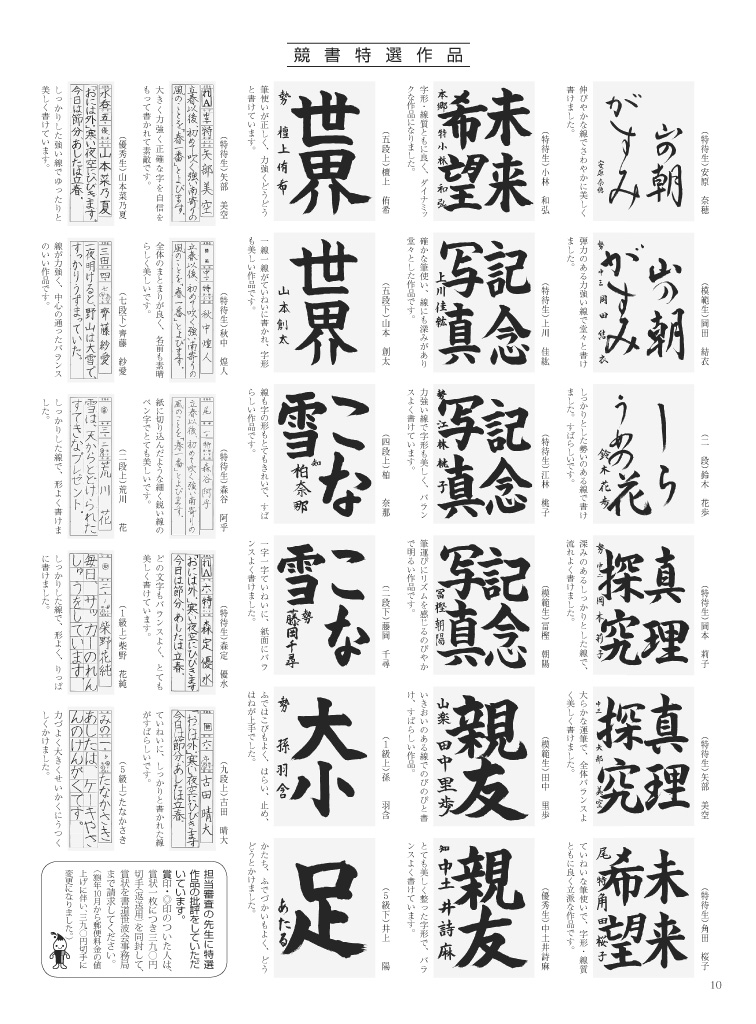 競書特選作品
山の朝
がすみ
安原奈穂
(特待生)安原 奈穂
伸びやかな線でさわやかに美しく
書けました。
山の朝
がすみ
勢 中三 岡田結衣
(模範生)岡田 結衣
弾力のある力強い線で堂々と書け
ました。
しら
うめの花
鈴木花歩
(二段)鈴木 花歩
しっかりとした勢いのある線で書け
ました。すばらしいです。
真理
探究
勢 中二 岡本莉子
(特待生)岡本 莉子
深みのあるしっかりとした線で、
流れよく書けました。
真理
探究
矢部美空
(特待生)矢部 美空
大らかな運筆で、全体バランスよ
く美しく書けました。
未来
希望
尾 特 角田桜子
(特待生)角田 桜子
ていねいな筆使いで、字形・線質
ともに良く立派な作品です。
未来
希望
本郷 特 小林和弘
(特待生)小林 和弘
字形・線質ともに良く、ダイナミッ
クな作品になりました。
記念
写真
上川佳紘
(特待生)上川 佳紘
確かな筆使い、線にも深みがあり
堂々とした作品です。
記念
写真
勢 江林桃子
(特待生)江林 桃子
力強い線で字形も美しく、バラン
スよく書けています。
記念
写真
冨樫朝陽
(模範生)冨樫 朝陽
筆運びにリズムを感じるのびやか
で明るい作品です。
親友
山楽 田中里歩
(模範生)田中 里歩
いきおいのある線でのびのびと書
け、すばらしい作品。
親友
知 中土井詩麻
(優秀生)中土井詩麻
とても美しく整った字形で、バラ
ンスよく書けています。
世界
勢 檀上侑希
(五段上)檀上 侑希
筆使いが正しく、力強くどうどう
と書けています。
世界
山本創太
(五段下)山本 創太
一線一線がていねいに書かれ、字形
も美しい作品です。
こな
雪
知 柏奈那
(四段上)柏 奈那
線も字の形もとてもきれいで、すば
らしい作品です。
こな
雪
勢 藤岡千尋
(二段下)藤岡 千尋
一字一字ていねいに、紙面にバラ
ンスよく書けました。
大小
勢 孫羽含
(1級上)孫 羽含
ふではこびもよく、はらい、止め、
はねが上手でした。
足
あたる
(5級下)井上 陽
かたち、ふでづかいもよく、どう
どうとかけました。
立春以後、初めて吹く強い南寄りの
風のことを「春一番」とよびます。
矢部美空
(特待生)矢部 美空
大きく力強く正確な字を自信を
もって書かれて素敵です。
立春以後、初めて吹く強い南寄りの
風のことを「春一番」とよびます。
秋中煌人
(特待生)秋中 煌人
全体のまとまりが良く、名前も素晴
らしく美しいです。
立春以後、初めて吹く強い南寄りの
風のことを「春一番」とよびます。
森谷阿乎
(特待生)森谷 阿乎
紙に切り込んだような細く鋭い線の
ペン字でとても美しいです。
「おには外」寒い夜空にひびきます
今日は節分、あしたは立春。
森定優水
(特待生)森定 優水
どの文字もバランスよく、とても
美しく書けています。
「おには外」寒い夜空にひびきます
今日は節分、あしたは立春。
古田晴大
(九段上)古田 晴大
ていねいに、しっかりと書かれた線
がすばらしいです。
山本菜乃夏
「おには外」寒い夜空にひびきます。
今日は節分、あしたは立春。
(優秀生)山本菜乃夏
しっかりした強い線でゆったりと
美しく書けています。
齊藤紗愛
一夜明けると、野山は大雪で、
すっかりうずまっていた。
(七段下)齊藤 紗愛
線が力強く、中心の通ったバランス
のいい作品です。
荒川花
雪は、天からとどけられた
すてきなプレゼント。
(二段上)荒川 花
しっかりした線で、形よく書けま
した。
柴野花純
毎日、サッカーのれん
しゅうをしています。
(1級上)柴野 花純
しっかりした線で、形よく、りっぱ
に書けました。
たなかさき
あしたは、ケーキやさ
んのけんがくです。
(5級上)たなかさき
力づよく大きくせいかくにうつく
しくかけました。
担当審査の先生に特選
作品の批評をしていただ
いています。
賞印・◎印のついた人は、
賞状一枚につき三九〇円
切手(返送用)を同封して、
賞状を書道香波会事務局
まで請求してください。
(令和6年10月から郵便料金の値
上げに伴い、三九〇円切手に
変更になりました。)
10